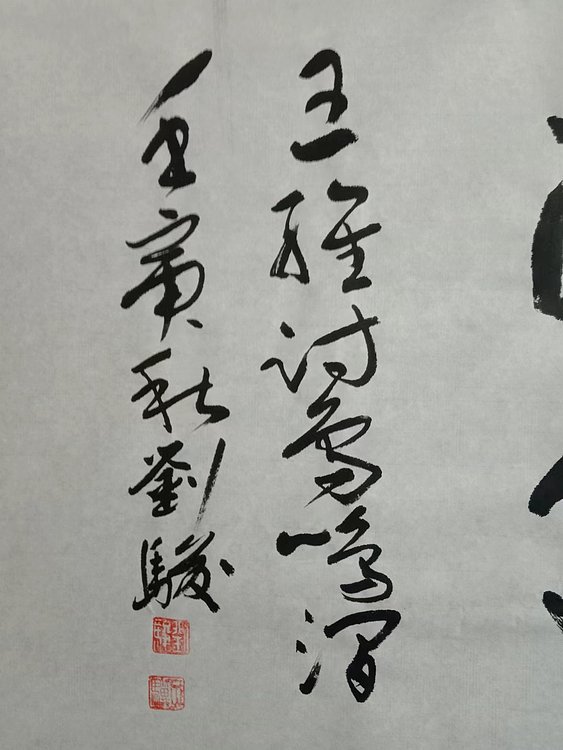 王維詩鳥鳴澗
壬寅秋劉駿